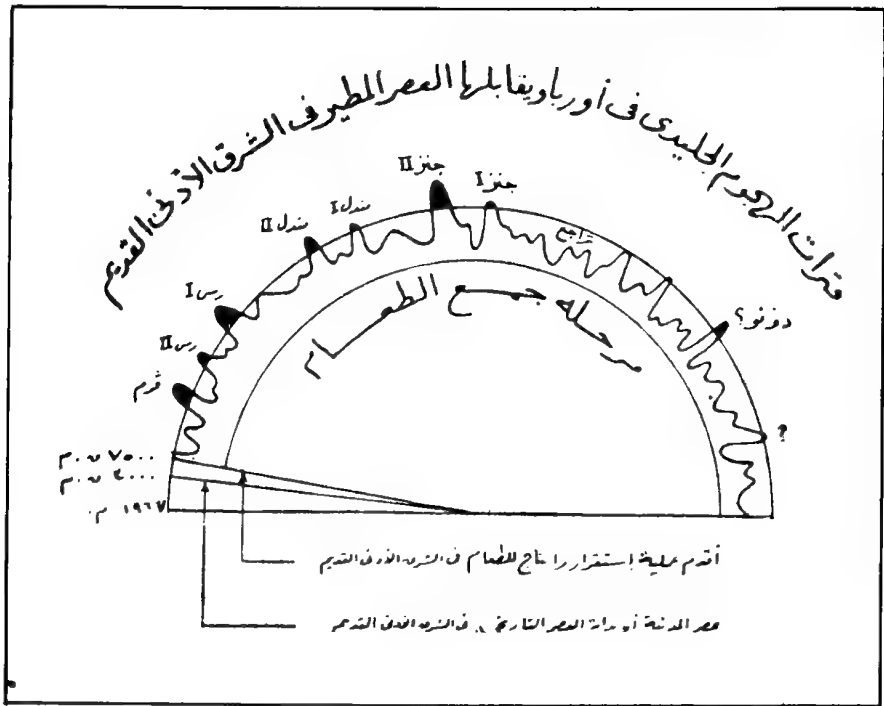 فترات الهجوم الجليدى فى أوربا ويقابلها العصر المطير فى الشرق الأدنى القديم
جنز I
جنز II
مندل I
مندل II
رس I
رس II
ڤرم
تراجع
دونو؟
?
مرحله جمع الطعام
٧٥٠٠ ق.م
٣٠٠٠ ق.م
١٩٦٧ م.
أقدم عملية إستقرار وإنتاج للطعام فى الشرق الأدنى القديم
عصر المدنية أو بداية العصر التاريخى فى الشرق الأدنى القديم